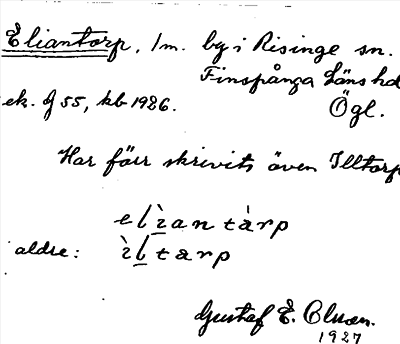 Eliantorp, 1 m. by i Risinge sn.
Finspånga läns hd
ek. 9 55, kb 1926. Ögl.
Har förr skrivits även Illtorp
elìantàrp
äldre: ìltarp
Gustaf E.
1927